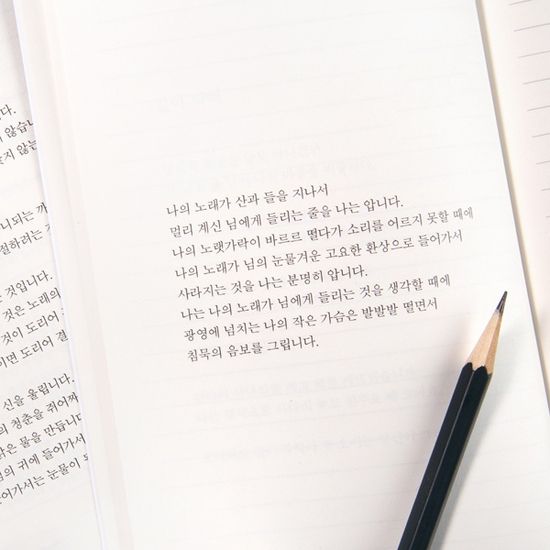 다.
않습니
니되는 까
절하려는
것입니다.
것은 노래의
것이 도리어
이면 도리어 결
신을 울립니다.
의 청춘을 쥐어짜
맑은 물을 만듭니다
님의 귀에 들어가서
어가서는 눈물이 되
나의 노래가 산과 들을 지나서
멀리 계신 님에게 들리는 줄을 나는 압니다.
나의 노랫가락이 바르르 떨다가 소리를 어르지 못할 때에
나의 노래가 님의 눈물겨운 고요한 환상으로 들어가서
사라지는 것을 나는 분명히 압니다.
나는 나의 노래가 님에게 들리는 것을 생각할 때에
광영에 넘치는 나의 작은 가슴은 발발발 떨면서
침묵의 음보를 그립니다.